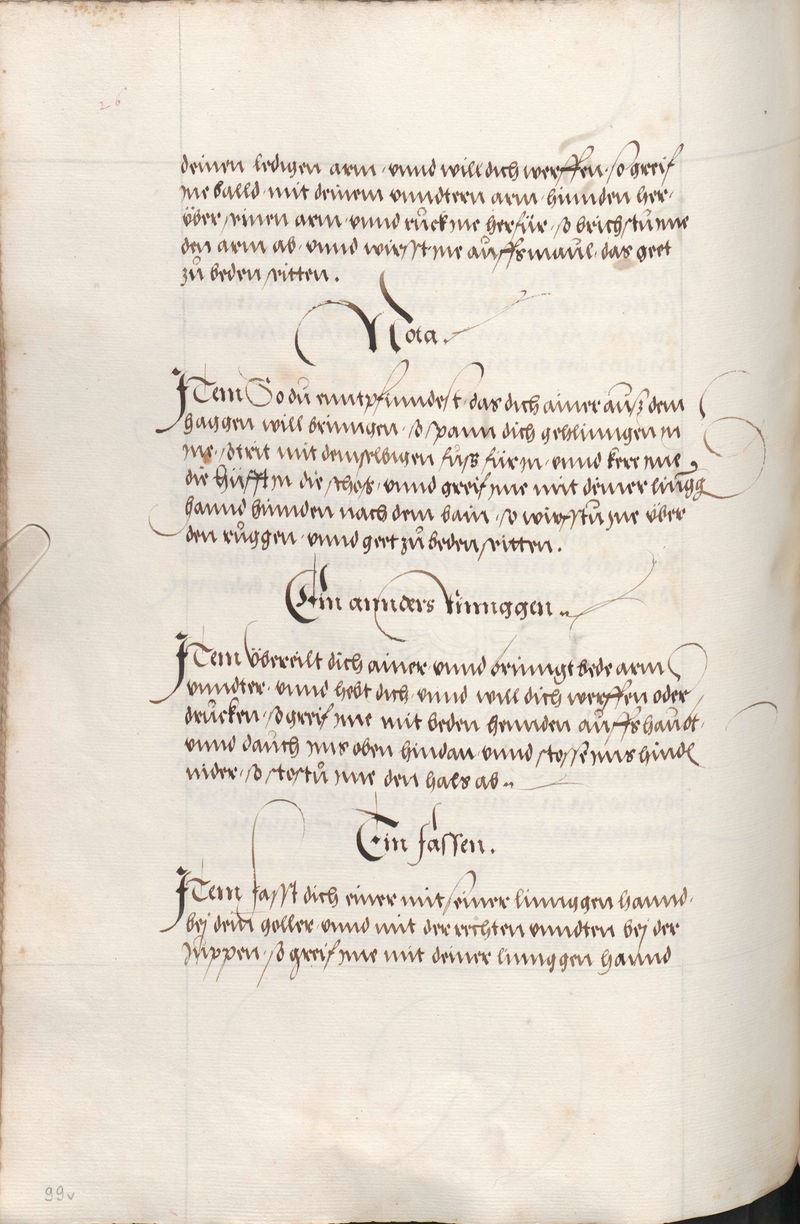 26
deinen ledigen arm · vnnd will dich werffen · so greif
jme balld · mit deinem vnndtern arm · hinnden her-
über seinen arm · vnnd ruck jne herfür · so brichstu jme
den arm ab · vnnd wirfst jne auffs maul · das geet
zu beden seitten .
Nota .
Item So du enntpfindest · das dich ainer auß dem
haggen will brinngen · so spann dich gehlinngen in
jne · so trit mit demselbigen fuss für in · vnnd kere jme
die hüfft in die schos · vnnd greif jme mit deiner lingg
hannd hinnden nach dem bain · so wirfstu jne über
den ruggen · vnnd geet zu beden seitten .
Ein annders Rinnggen ..
Item übereilt dich ainer · vnnd brinngt bede arm
vnndter · vnnd hebt dich · vnnd will dich werffen oder
drucken · so greif jme mit beden hennden auffs haudt ·
vnnd dauch jms oben hindan · vnnd stosse jms hindn
nider · so stostu jme den hals ab ..
Ein fassen .
Item fasst dich einer mit seiner linnggen hannd ·
bej dem goller · vnnd mit der rechten vnndten bej der
juppen · so greif jme mit deiner linnggen hannd
99v